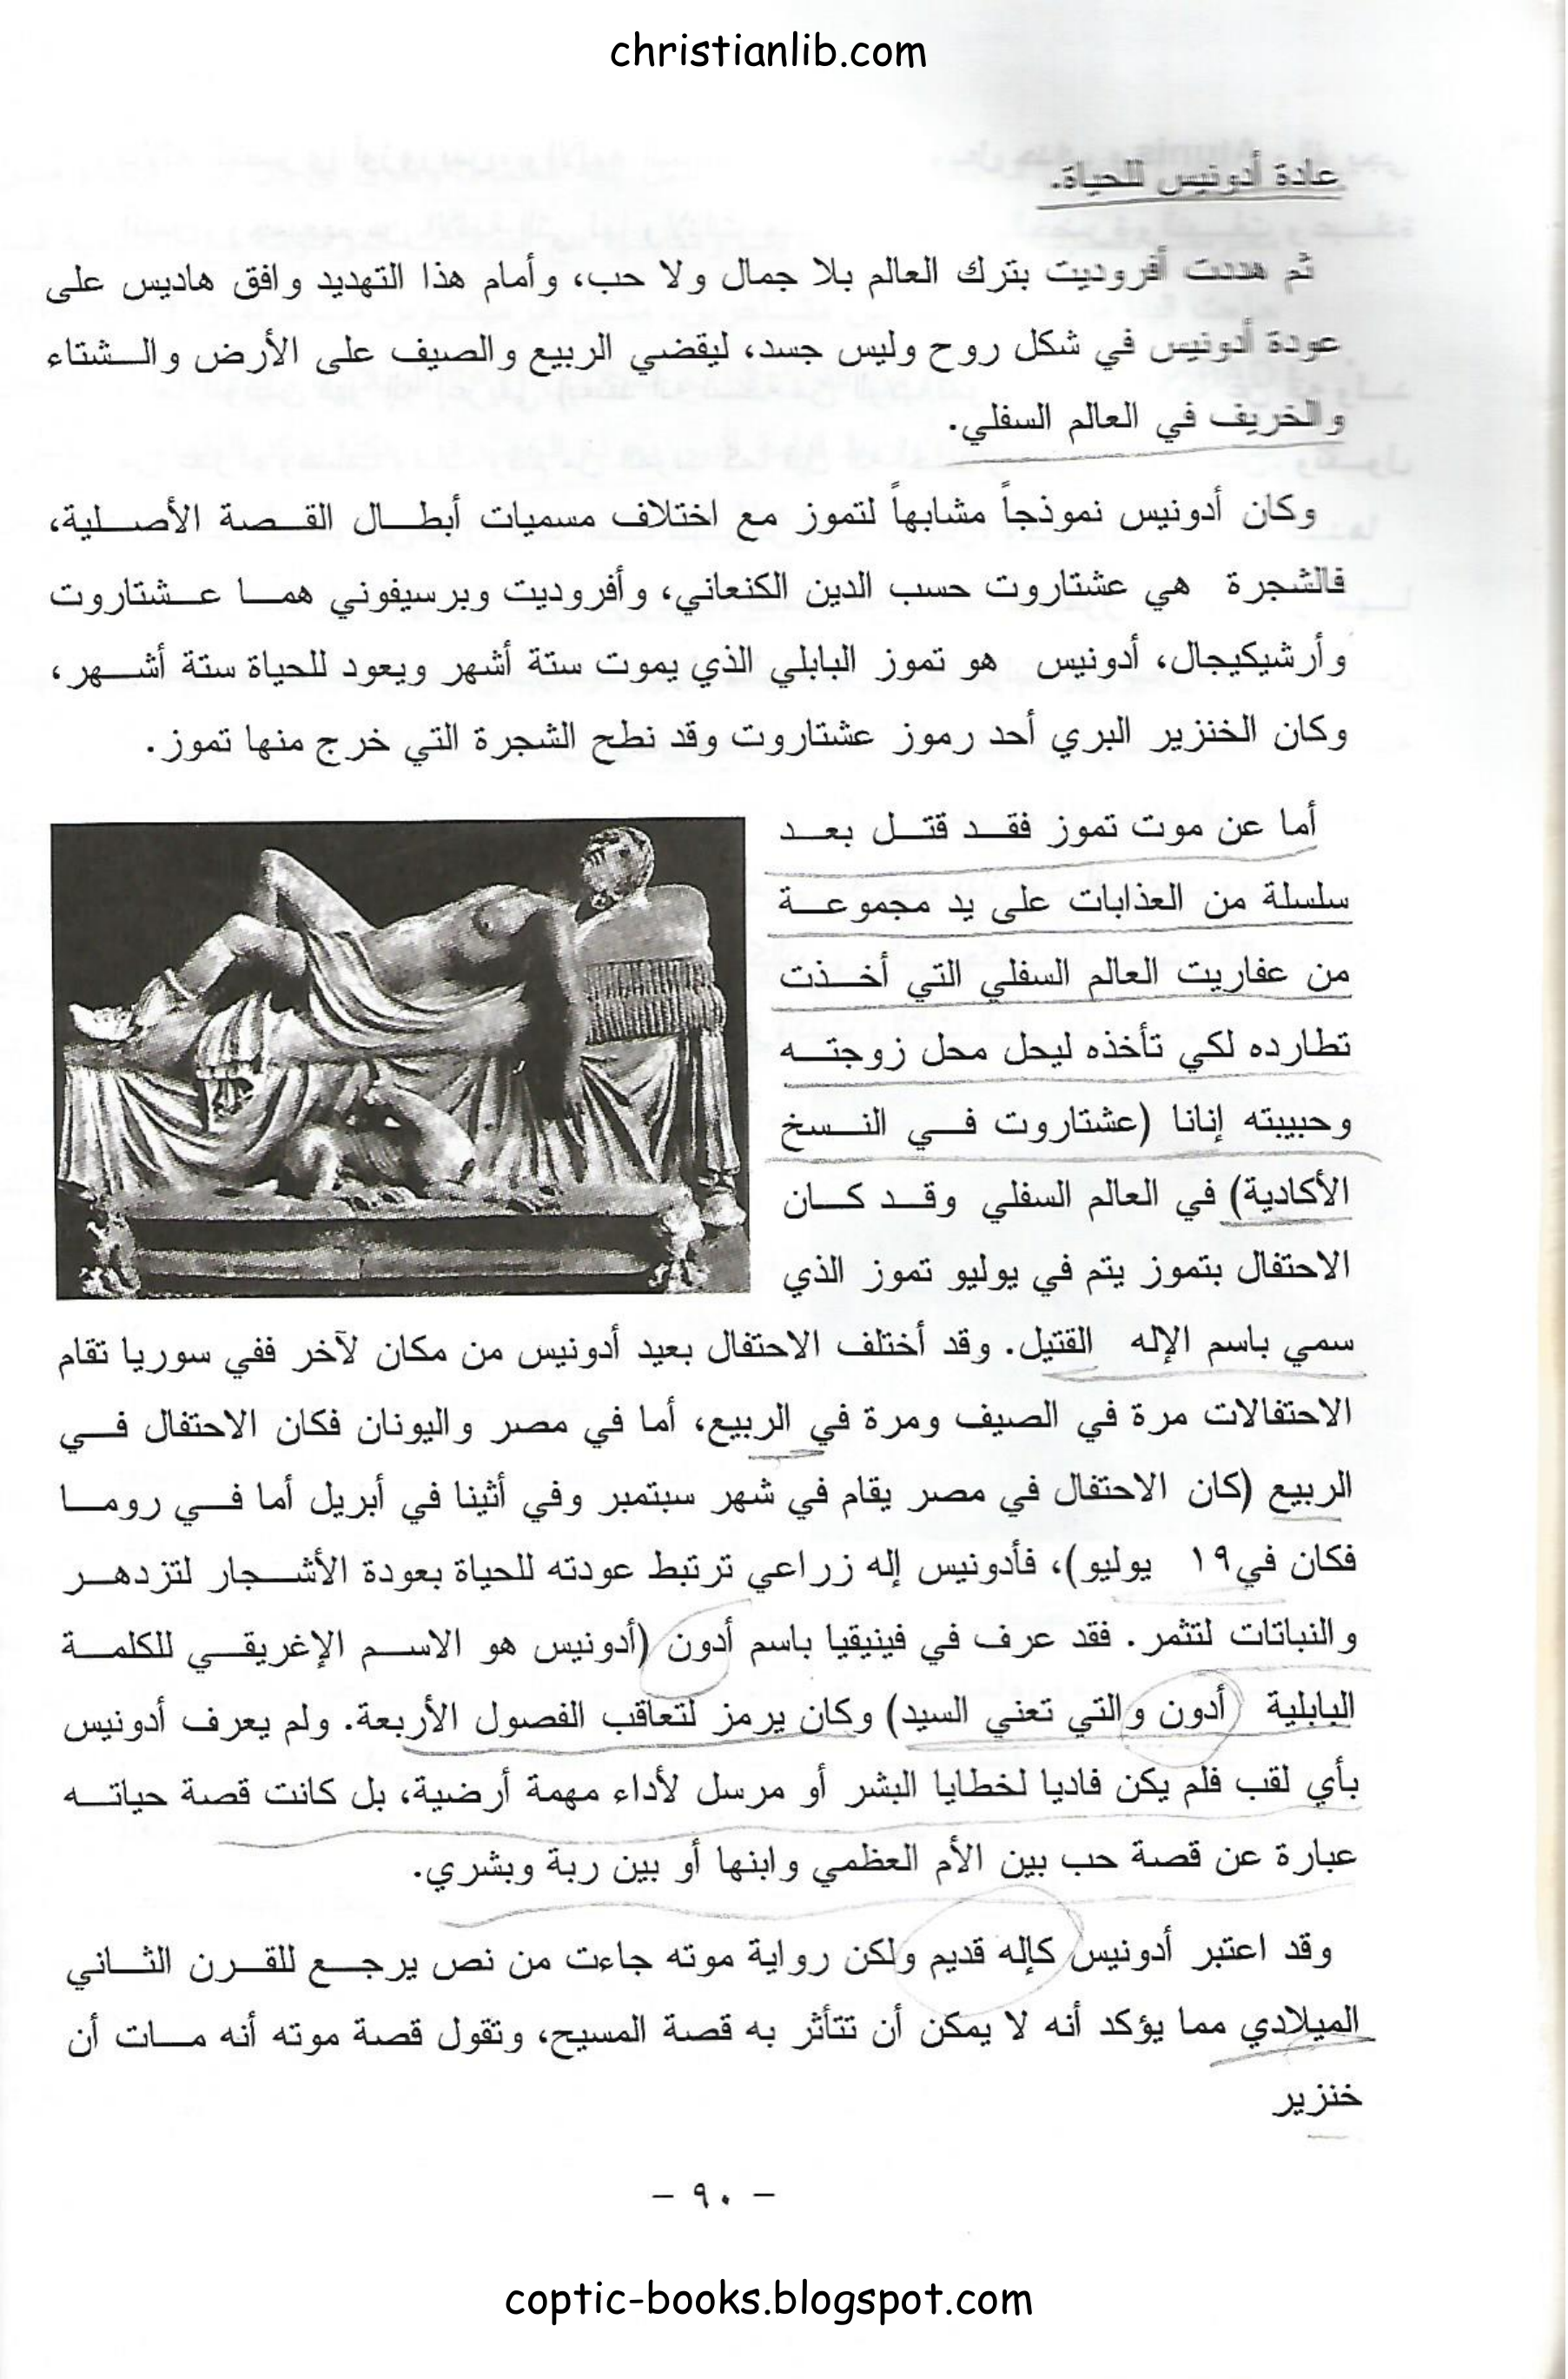 christianlib.com
عادة أدونيس للحياة.
ثم هددت أفروديت بترك العالم بلا جمال ولا حب، وأمام هذا التهديد وافق هاديس على
عودة أدونيس في شكل روح وليس جسد، ليقضي الربيع والصيف على الأرض والشتاء
والخريف في العالم السفلي.
وكان أدونيس نموذجاً مشابهاً لتموز مع اختلاف مسميات أبطال القصة الأصلية،
فالشجرة هي عشتاروت حسب الدين الكنعاني، وأفروديت وبرسيفوني هما عشتاروت
وأرشيكيجال، أدونيس هو تموز البابلي الذي يموت ستة أشهر ويعود للحياة ستة أشهر،
وكان الخنزير البري أحد رموز عشتاروت وقد نطح الشجرة التي خرج منها تموز.
أما عن موت تموز فقد قتل بعد
سلسلة من العذابات على يد مجموعة
من عفاريت العالم السفلي التي أخذت
تطارده لكي تأخذه ليحل محل زوجته
وحبيبته إنانا (عشتاروت في النسخ
الأكادية) في العالم السفلي وقد كان
الاحتفال بتموز يتم في يوليو تموز الذي
سمي باسم الإله القتيل. وقد أختلف الاحتفال بعيد أدونيس من مكان لآخر ففي سوريا تقام
الاحتفالات مرة في الصيف ومرة في الربيع، أما في مصر واليونان فكان الاحتفال في
الربيع (كان الاحتفال في مصر يقام في شهر سبتمبر وفي أثينا في أبريل أما في روما
فكان في١٩ يوليو)، فأدونيس إله زراعي ترتبط عودته للحياة بعودة الأشجار لتزدهر
والنباتات لتثمر. فقد عرف في فينيقيا باسم أدون (أدونيس هو الاسم الإغريقي للكلمة
البابلية أدون والتي تعني السيد) وكان يرمز لتعاقب الفصول الأربعة. ولم يعرف أدونيس
بأي لقب فلم يكن فاديا لخطايا البشر أو مرسل لأداء مهمة أرضية، بل كانت قصة حياته
عبارة عن قصة حب بين الأم العظمي وابنها أو بين ربة وبشري.
وقد اعتبر أدونيس كإله قديم ولكن رواية موته جاءت من نص يرجع للقرن الثاني
الميلادي مما يؤكد أنه لا يمكن أن تتأثر به قصة المسيح، وتقول قصة موته أنه مات أن
خنزير
- ٩٠ -
coptic-books.blogspot.com